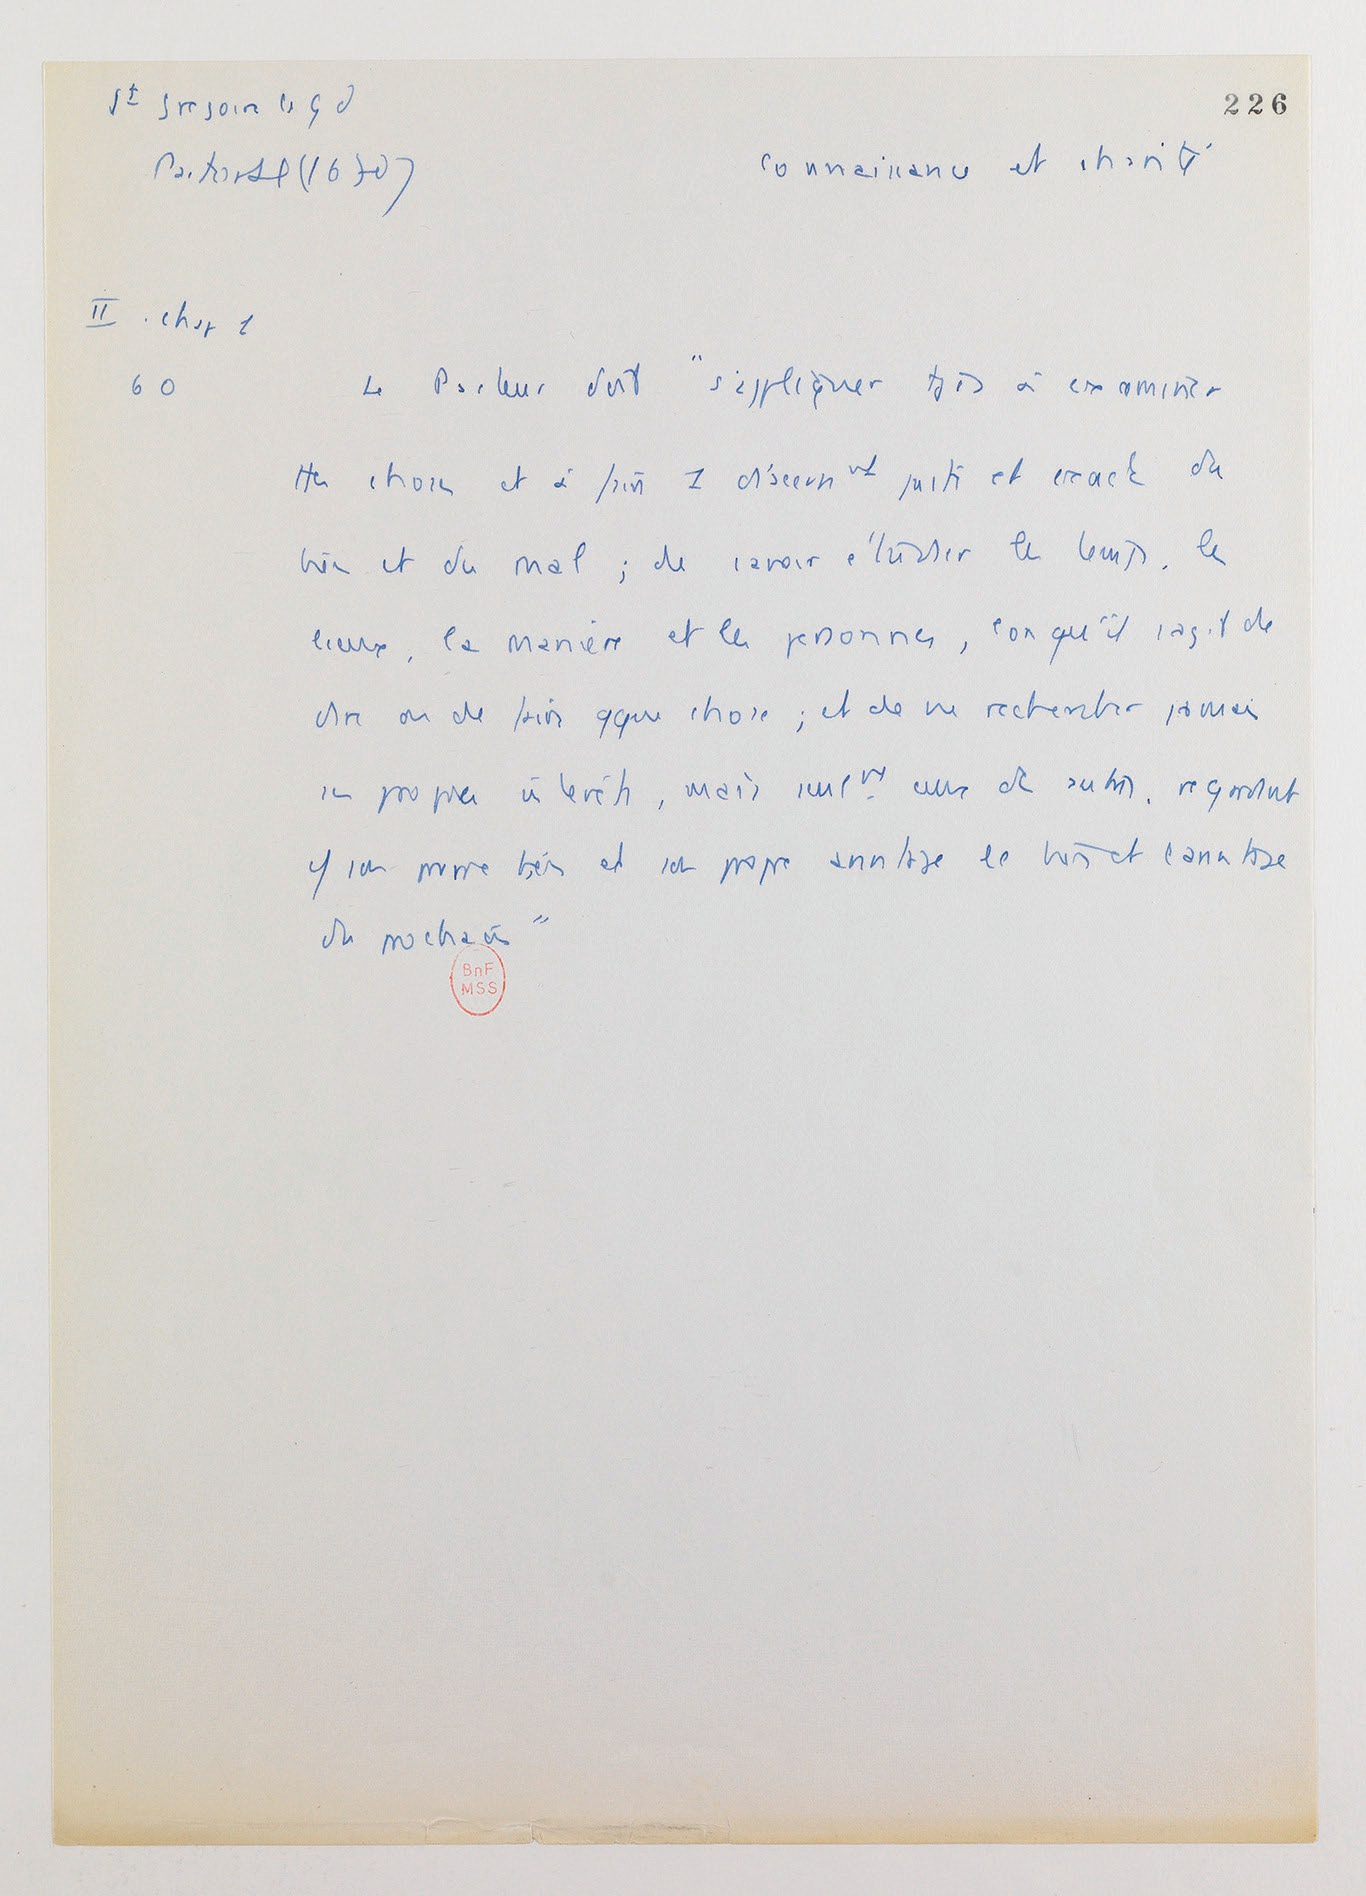 St Grégoire le Gd
226
Pastoral (1670)
connaissance et charité
II . chap 2
60
Le Pasteur doit "s'appliquer tjrs à examiner
ttes choses et à faire 1 discernt juste et exact du
bien et du mal ; de savoir étudier les temps, les
lieux, la manière et les personnes, lorsqu'il s'agit de
dire ou de faire qque chose ; et de ne rechercher jamais
ses propres intérêts, mais seulnt ceux des autres, regardant
son propre bien et son propre avantage le bien et l'avantage
du prochain"
BnF
MSS